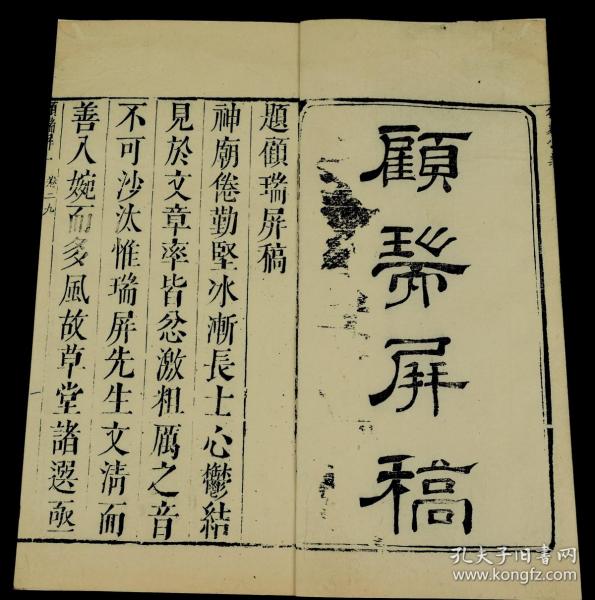 顧瑞屏稿
題顧瑞屏稿
神廟倦勤堅冰漸長士心鬱結
見於文章率皆忿激粗厲之音
不可沙汰惟瑞屏先生文清而
善入婉而多風故草堂諸選亟
顧瑞屏一 卷二九
一
孔夫子旧书网
www.kongfz.com